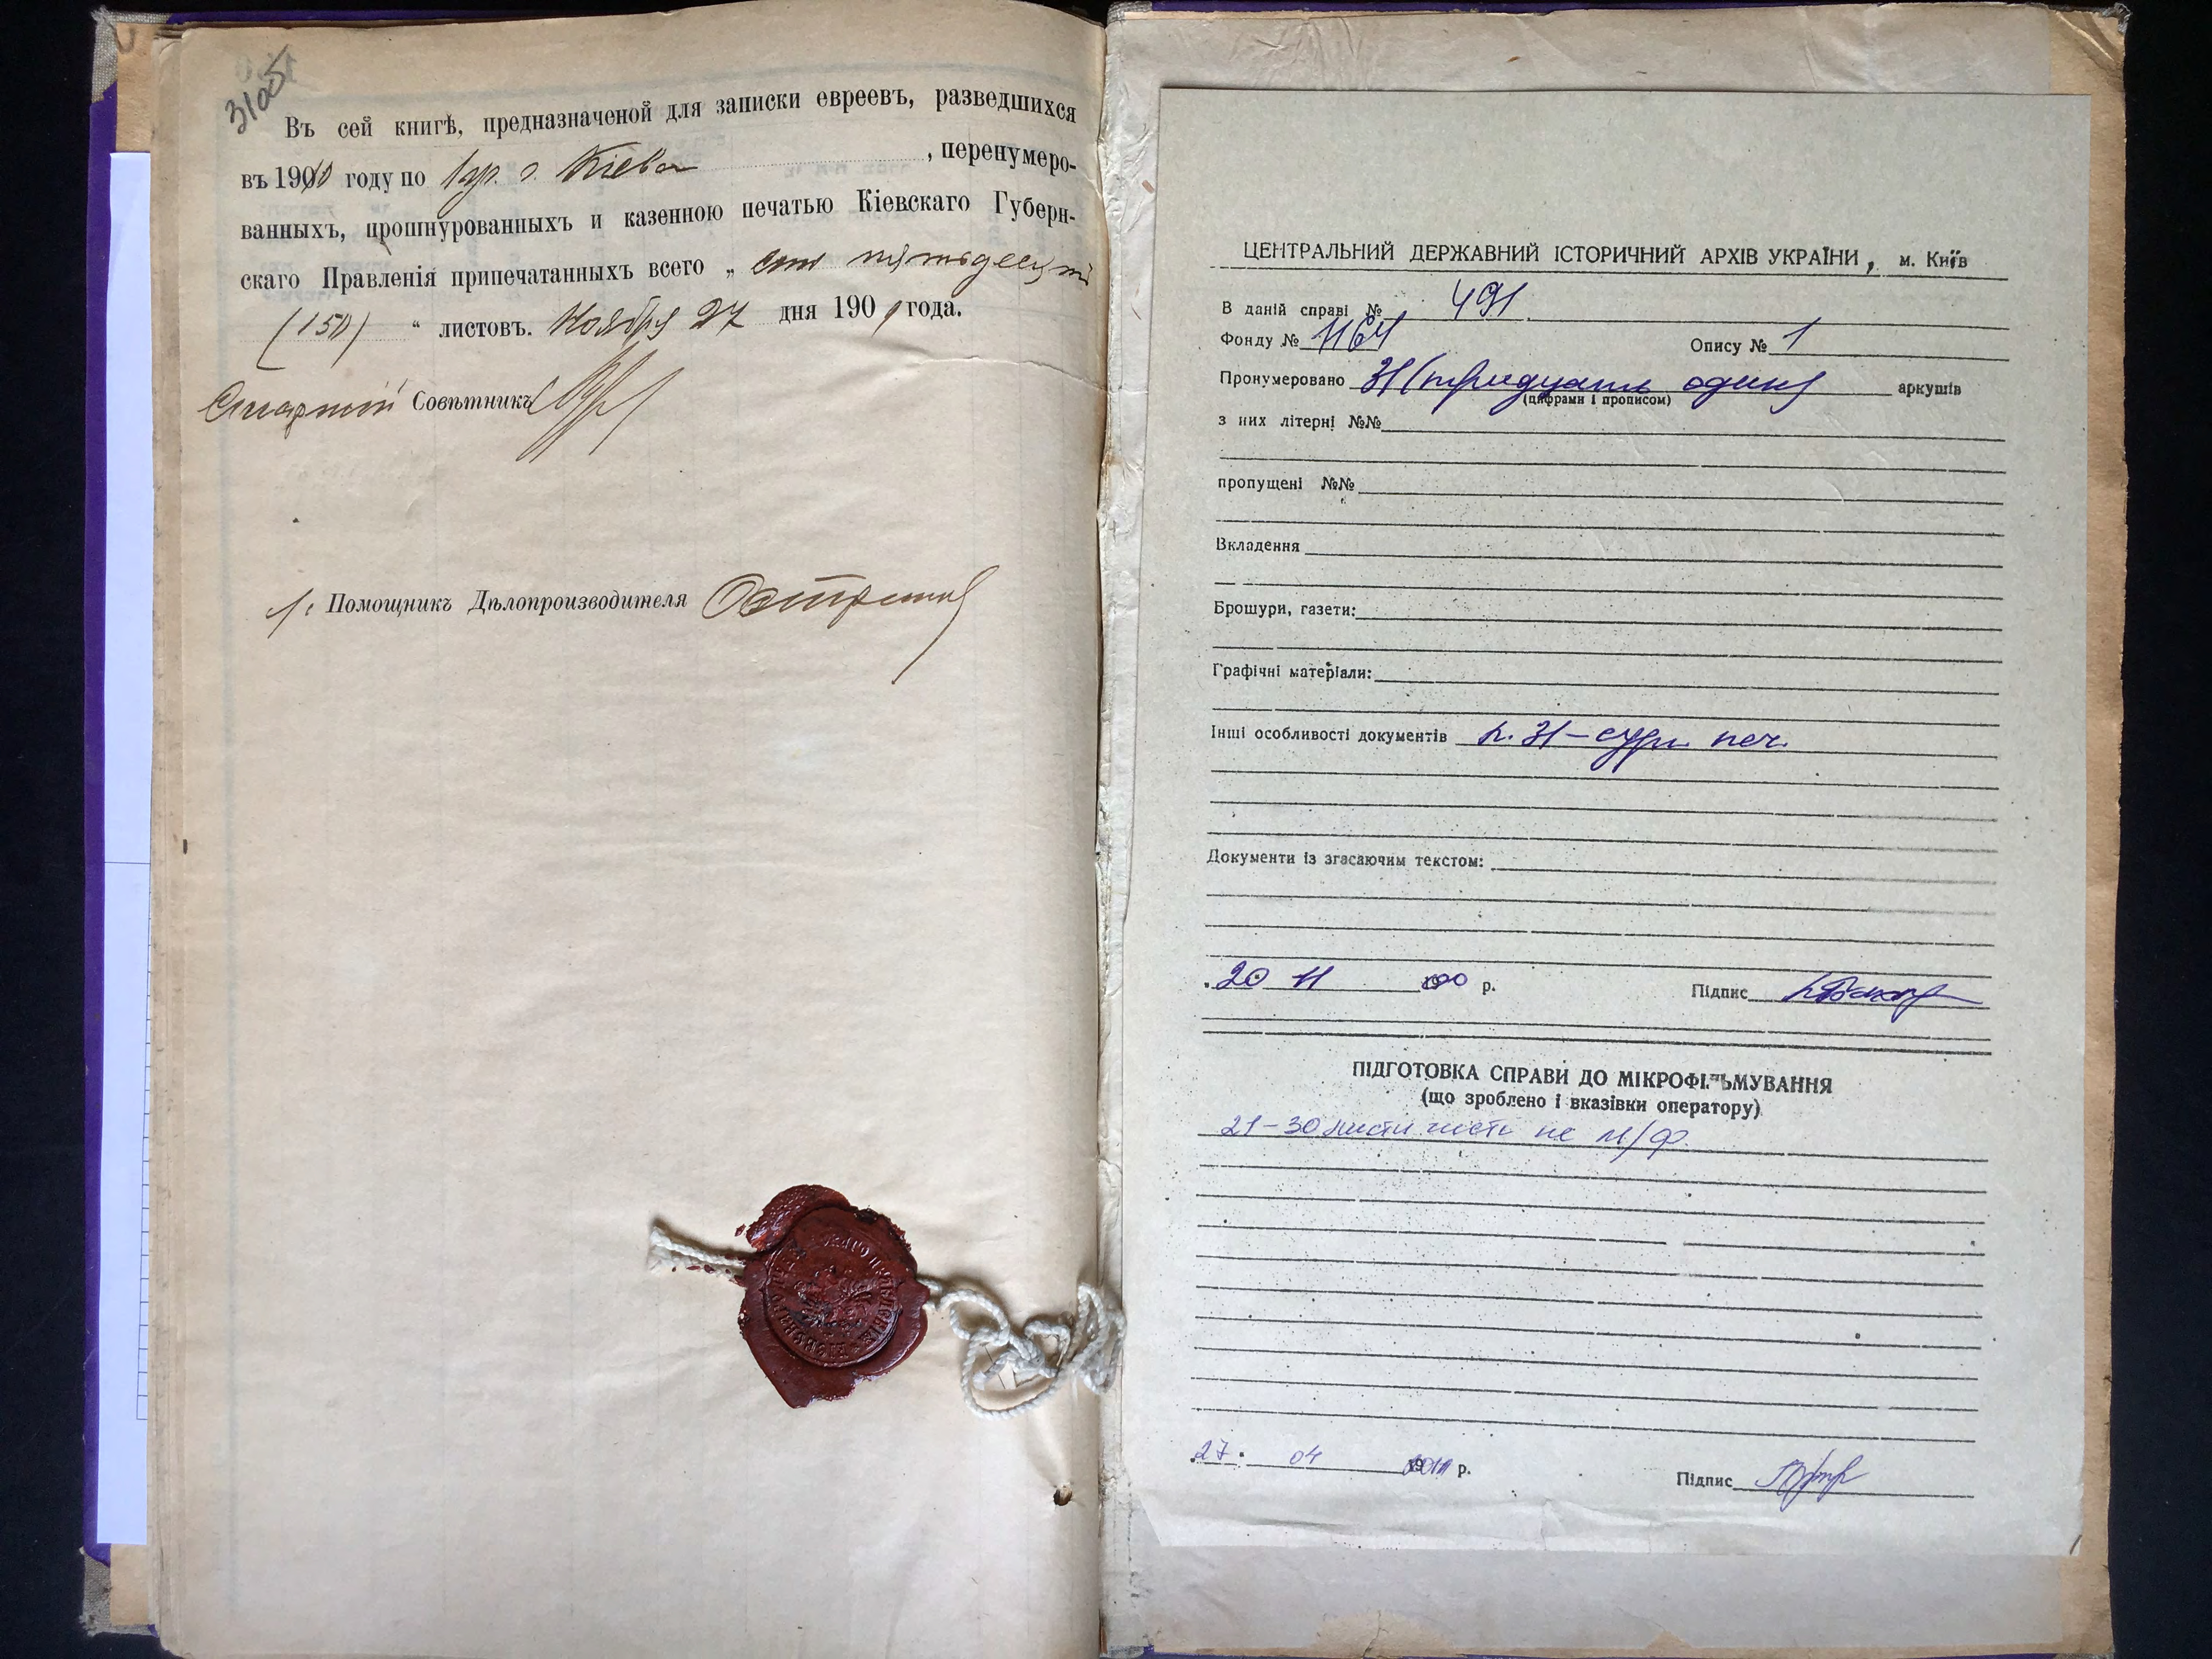 31 об
Въ сей книгѣ, предназначеной для записки евреевъ, разведшихся
въ 1910 году по 1 ар. г. Кіева, перенумеро-
ванныхъ, прошнурованныхъ и казенною печатью Кіевскаго Губерн-
скаго Правленія припечатанныхъ всего „ сто пятьдесятъ
(150) “ листовъ. Ноября 27 дня 1909 года.
Старшій Совѣтникъ
Помощникъ Дѣлопроизводителя
ЦЕНТРАЛЬНИЙ ДЕРЖАВНИЙ ІСТОРИЧНИЙ АРХІВ УКРАЇНИ, м. Київ
В даній справі № 491
Фонду № 1164 Опису № 1
Пронумеровано 31 (тридцать один) аркушів
(цифрами і прописом)
з них літерні №№
пропущені №№
Вкладення
Брошури, газети:
Графічні матеріали:
Інші особливості документів А. 31 – сург. печ.
Документи із згасаючим текстом:
20 11 р. Підпис
ПІДГОТОВКА СПРАВИ ДО МІКРОФІЛЬМУВАННЯ
(що зроблено і вказівки оператору)
21–30 листи чисті не м/ф.
27. 04 р. Підпис